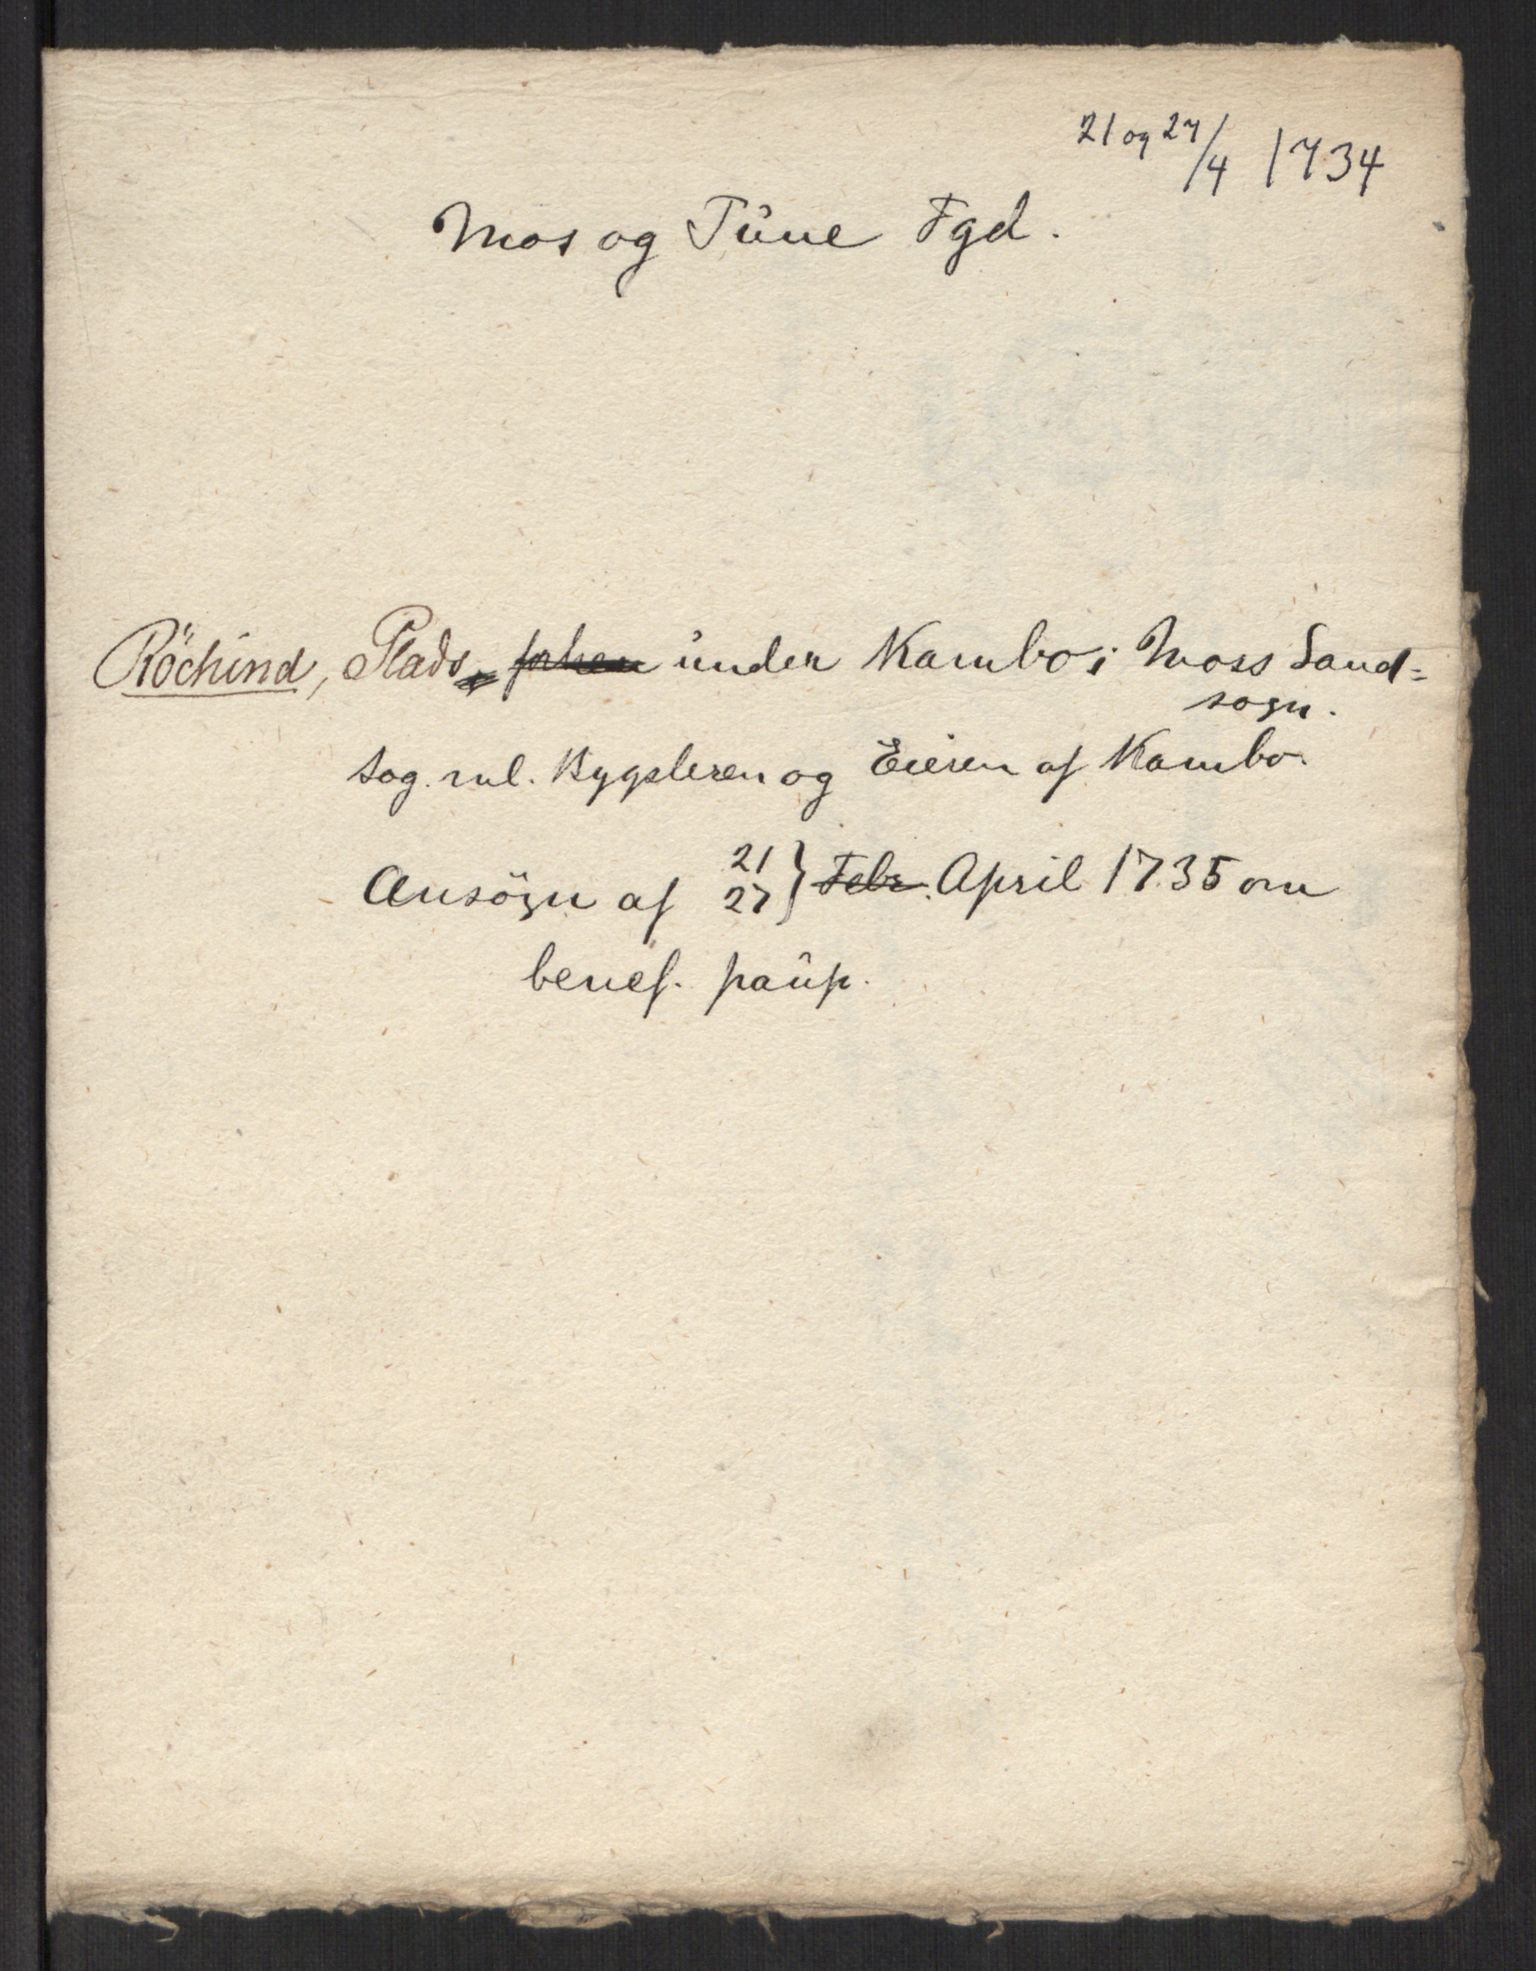 21 og 27/4 1734
Mos og Tune Fgd.
Röchind, Plads under Kambo i Moss Land-
sogn.
Sag ml. Bygsleren og Eieren af Kambo.
Ansögn af 21 27 } Febr. April 1735 om
benef. paup.